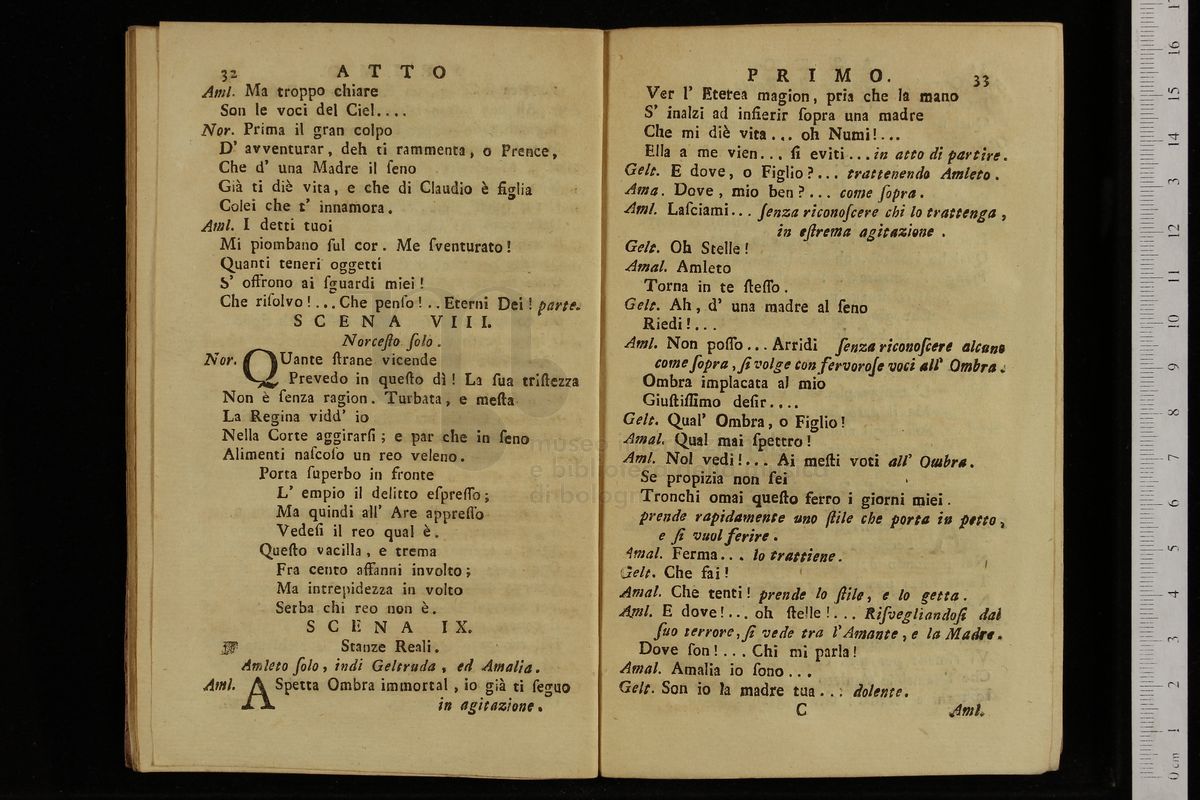 32 ATTO
Aml. Ma troppo chiare
Son le voci del Ciel....
Nor. Prima il gran colpo
D' avventurar, deh ti rammenta, o Prence,
Che d' una Madre il ſeno
Già ti diè vita, e che di Claudio è figlia
Colei che t' innamora.
Aml. I detti tuoi
Mi piombano ſul cor. Me ſventurato!
Quanti teneri oggetti
S' offrono ai ſguardi miei!
Che riſolvo!... Che penſo!.. Eterni Dei! parte.
SCENA VIII.
Norceſto ſolo.
Nor. QUante ſtrane vicende
Prevedo in queſto dì! La ſua triſtezza
Non è ſenza ragion. Turbata, e meſta
La Regina vidd' io
Nella Corte aggirarſi; e par che in ſeno
Alimenti naſcoſo un reo veleno.
Porta ſuperbo in fronte
L' empio il delitto eſpreſſo;
Ma quindi all' Are appreſſo
Vedeſi il reo qual è.
Queſto vacilla, e trema
Fra cento affanni involto;
Ma intrepidezza in volto
Serba chi reo non è.
SCENA IX.
☞ Stanze Reali.
Amleto ſolo, indi Geltruda, ed Amalia.
Aml. ASpetta Ombra immortal, io già ti ſeguo
in agitazione.
PRIMO. 33
Ver l' Eterea magion, pria che la mano
S' inalzi ad inſierir ſopra una madre
Che mi diè vita... oh Numi!...
Ella a me vien... ſi eviti... in atto di partire.
Gelt. E dove, o Figlio?... trattenendo Amleto.
Ama. Dove, mio ben?... come ſopra.
Aml. Laſciami... ſenza riconoſcere chi lo trattenga,
in eſtrema agitazione.
Gelt. Oh Stelle!
Amal. Amleto
Torna in te ſteſſo.
Gelt. Ah, d' una madre al ſeno
Riedi!...
Aml. Non poſſo... Arridi ſenza riconoſcere alcuno
come ſopra, ſi volge con fervoroſe voci all' Ombra.
Ombra implacata al mio
Giuſtiſſimo deſir....
Gelt. Qual' Ombra, o Figlio!
Amal. Qual mai ſpettro!
Aml. Nol vedi!... Ai meſti voti all' Ombra.
Se propizia non ſei
Tronchi omai queſto ferro i giorni miei.
prende rapidamente uno ſtile che porta in petto,
e ſi vuol ferire.
Amal. Ferma... lo trattiene.
Gelt. Che fai!
Amal. Che tenti! prende lo ſtile, e lo getta.
Aml. E dove!... oh ſtelle!... Riſvegliandoſi dal
ſuo terrore, ſi vede tra l'Amante, e la Madre.
Dove ſon!... Chi mi parla!
Amal. Amalia io ſono...
Gelt. Son io la madre tua... dolente.
C Aml.